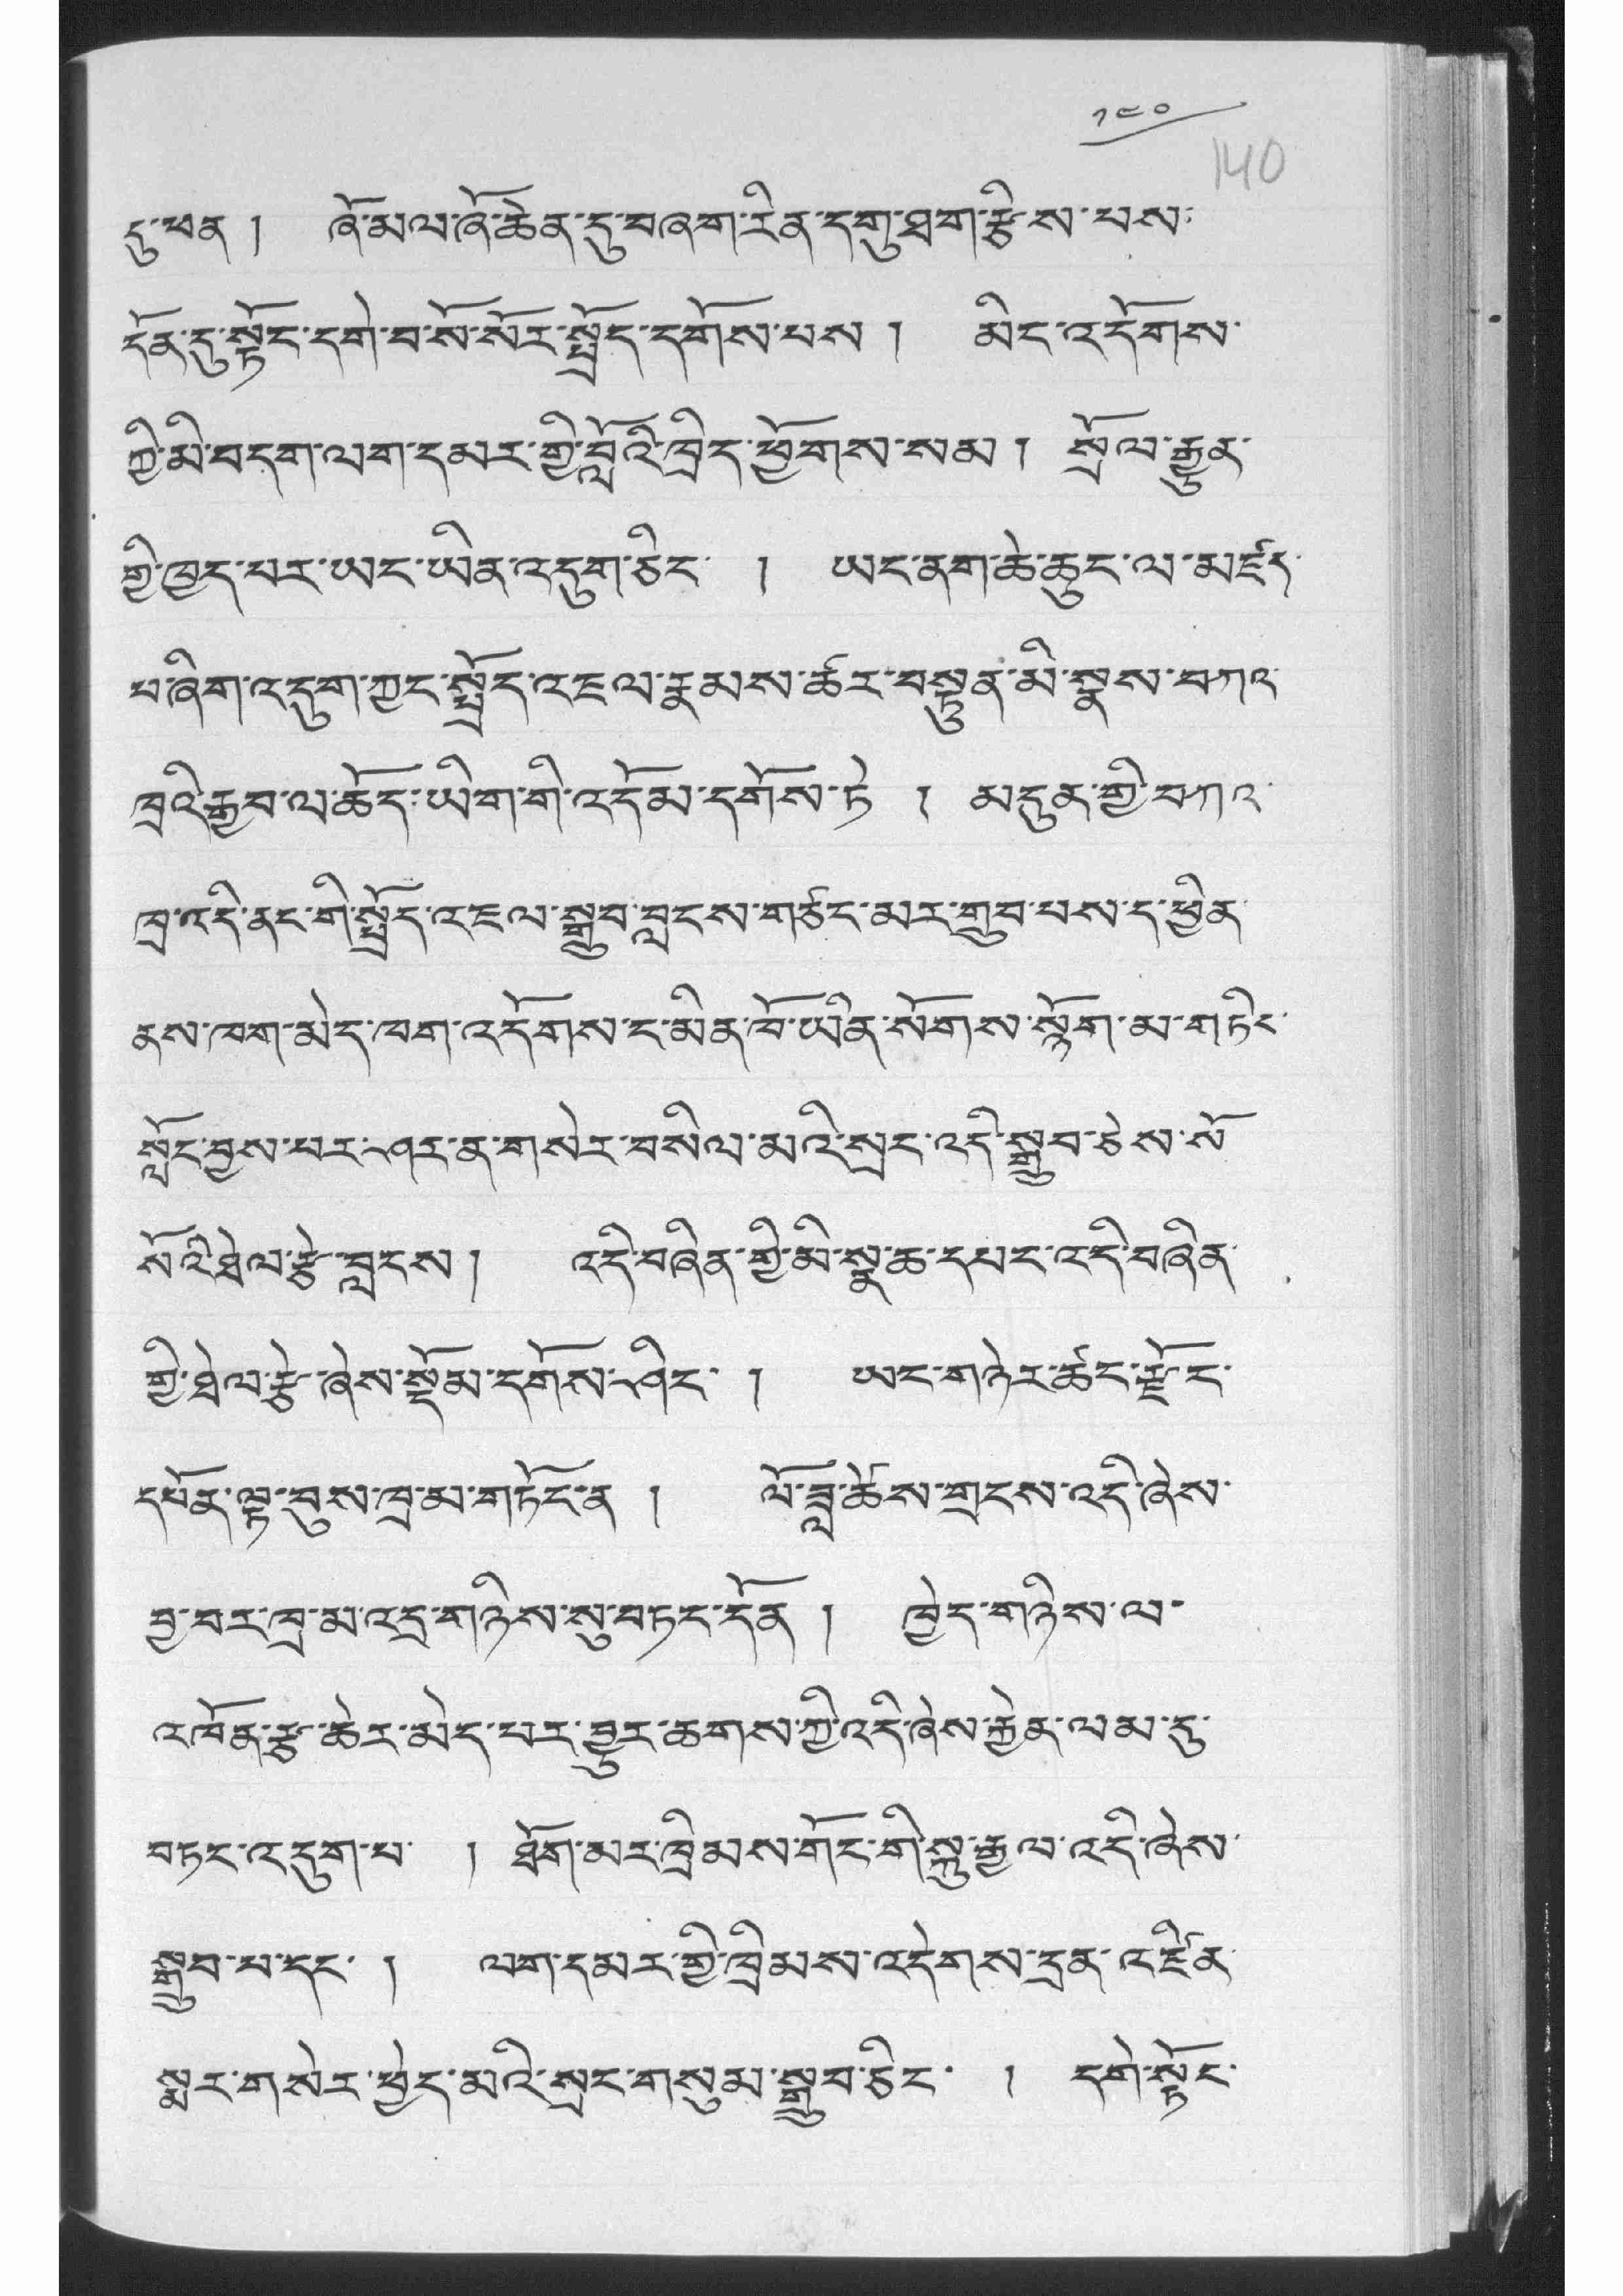 ༡༤༠
140
དུ་ཕན། ཞོ་མལ་ཞོ་ཆེན་དུ་བཞག་རིན་དགུ་ཐག་རྩིས་པས་
དོན་དུ་སྟོང་དགེ་བ་སོ་སོར་སྤྲོད་དགོས་པས། མིང་འདོགས་
ཀྱི་མི་བདག་ལག་དམར་གྱི་བློའི་ཁྲིད་ཕྱོགས་སམ། སྲོལ་རྒྱུན་
གྱི་ཁྱད་པར་ཡང་ཡིན་འདུག་ཅིང་། ཡང་ནག་ཆེ་ཆུང་ལ་མཛོད་
པ་ཞིག་འདུག་ཀྱང་སྤྲོད་འཇལ་རྣམས་ཚར་བསྟུན་མི་སྣས་བཀའ་
ཁྲའི་རྒྱབ་ལ་ཆོད་ཡིག་གི་འདོམ་དགོས་ཏེ། མདུན་གྱི་བཀའ་
ཁྲ་འདི་ནང་གི་སྤྲོད་འཇལ་སྒྲུབ་བླངས་གཙང་མར་གྲུབ་པས་ད་ཕྱིན་
ནས་ཁག་མེད་ཁག་འདོགས་ང་མིན་ཁོ་ཡིན་སོགས་སྙོག་མ་གཏིང་
སློང་བྱས་པར་ཤར་ན་གསེར་བསིལ་མའི་སྲང་འདི་སྒྲུབ་ཅེས་སོ་
སོའི་ཐེལ་རྩེ་བླངས། འདི་བཞིན་གྱི་མི་སྣ་ཆ་དཔང་འདི་བཞིན་
གྱི་ཐེལ་རྩེ་ཞེས་སྡོམ་དགོས་ཤིང་། ཡང་གཉེར་ཚང་རྫོང་
དཔོན་ལྟ་བུས་ཁྲ་མ་གཏོང་ན། ལོ་ཟླ་ཚེས་གྲངས་འདི་ཞེས་
བྱ་བར་ཁྲ་མ་འདྲ་གཉིས་སུ་བཏང་དོན། ཁྱེད་གཉིས་ལ་
འཁོན་རྩ་ཆེར་མེད་པར་བྱུར་ཆགས་ཀྱི་འདི་ཞེས་རྐྱེན་ལམ་དུ་
བཏང་འདུག་པ། ཐོག་མར་ཁྲིམས་གོང་གི་སྐུ་རྒྱལ་འདི་ཞེས་
སྒྲུབ་པ་དང་། ལག་དམར་གྱི་ཁྲིམས་འདེགས་དྲན་འཛིན་
སྨར་གསེར་ཕྱེད་མའི་སྲང་གསུམ་སྒྲུབ་ཅིང་། དགེ་སྟོང་